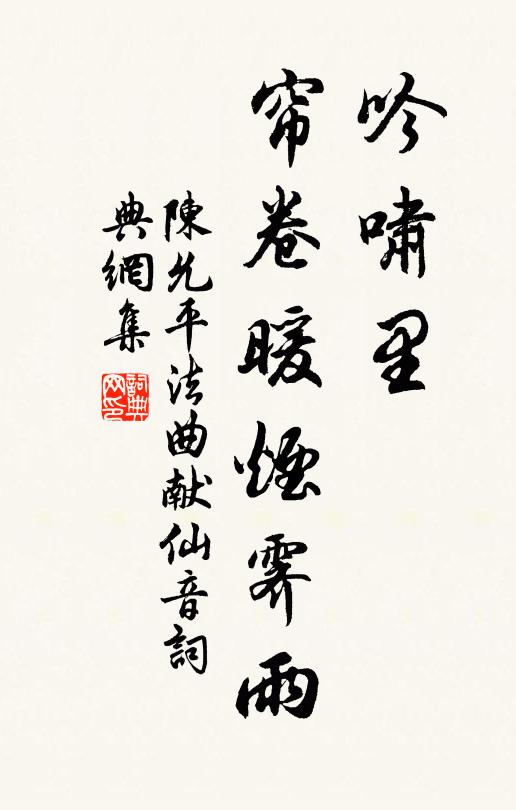 吟嘯里
帘卷暖煙霽雨
陳允平法曲献仙音詞
典網集
詞典网印